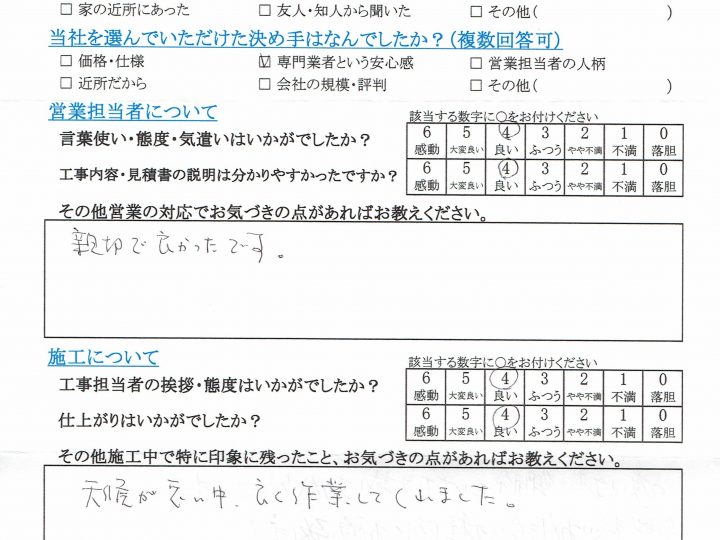 □ 家の近所にあった □ 友人・知人から聞いた □ その他( )
当社を選んでいただけた決め手はなんでしたか?(複数回答可)
□ 価格・仕様 ☑ 専門業者という安心感 □ 営業担当者の人柄
□ 近所だから □ 会社の規模・評判 □ その他( )
営業担当者について
該当する数字に○をお付けください
言葉使い・態度・気遣いはいかがでしたか?
6 5 4 3 2 1 0
感動 大変良い 良い ふつう やや不満 不満 落胆
工事内容・見積書の説明は分かりやすかったですか?
6 5 4 3 2 1 0
感動 大変良い 良い ふつう やや不満 不満 落胆
その他営業の対応でお気づきの点があればお教えください。
親切で良かったです。
施工について
該当する数字に○をお付けください
工事担当者の挨拶・態度はいかがでしたか?
6 5 4 3 2 1 0
感動 大変良い 良い ふつう やや不満 不満 落胆
仕上がりはいかがでしたか?
6 5 4 3 2 1 0
感動 大変良い 良い ふつう やや不満 不満 落胆
その他施工中で特に印象に残ったこと、お気づきの点があればお教えください。
天候が悪い中、良く作業してくれました。